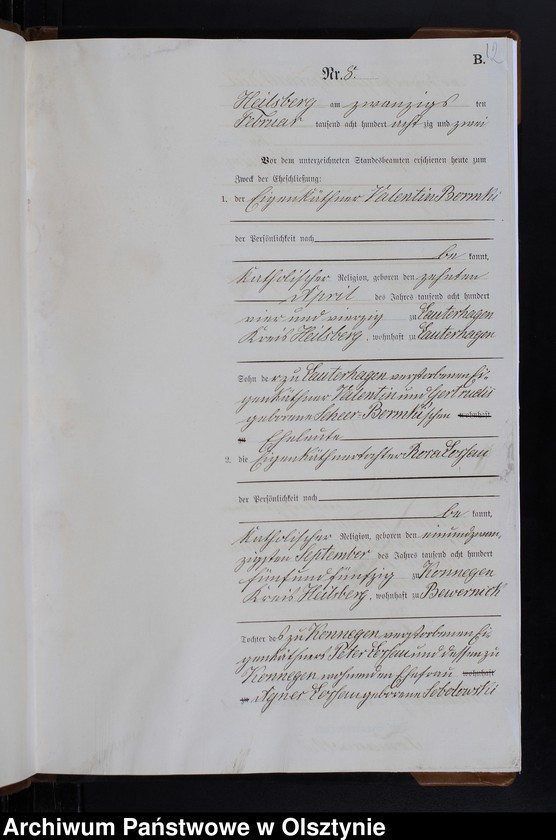 B. 12
Nr. 8.
Heilsberg am zwanzigs ten
Februar tausend acht hundert acht zig und zwei
Vor dem unterzeichneten Standesbeamten erschienen heute zum
Zweck der Eheschließung:
1. der Eigenkäthner Valentin Bormki
der Persönlichkeit nach
be kannt,
katholischer Religion, geboren den zehnten
April des Jahres tausend acht hundert
vier und vierzig zu Lauterhagen
Kreis Heilsberg, wohnhaft zu Lauterhagen
Sohn der zu Lauterhagen verstorbenen Ei-
genkäthner Valentin und Gertrudis
geborene Scheer-Bormki'schen wohnhaft
zu Eheleute
2. die Eigenkäthnertochter Rosa Lossau
der Persönlichkeit nach
be kannt,
katholischer Religion, geboren den einundzwan-
zigsten September des Jahres tausend acht hundert
fünf und fünfzig zu Konnegen
Kreis Heilsberg, wohnhaft zu Bewernick
Tochter des zu Konnegen verstorbenen Ei-
genkäthners Peter Lossau und dessen zu
Konnegen wohnenden Ehefrau wohnhaft
zu Agnes Lossau geborene Sobolowski
Archiwum Państwowe w Olsztynie